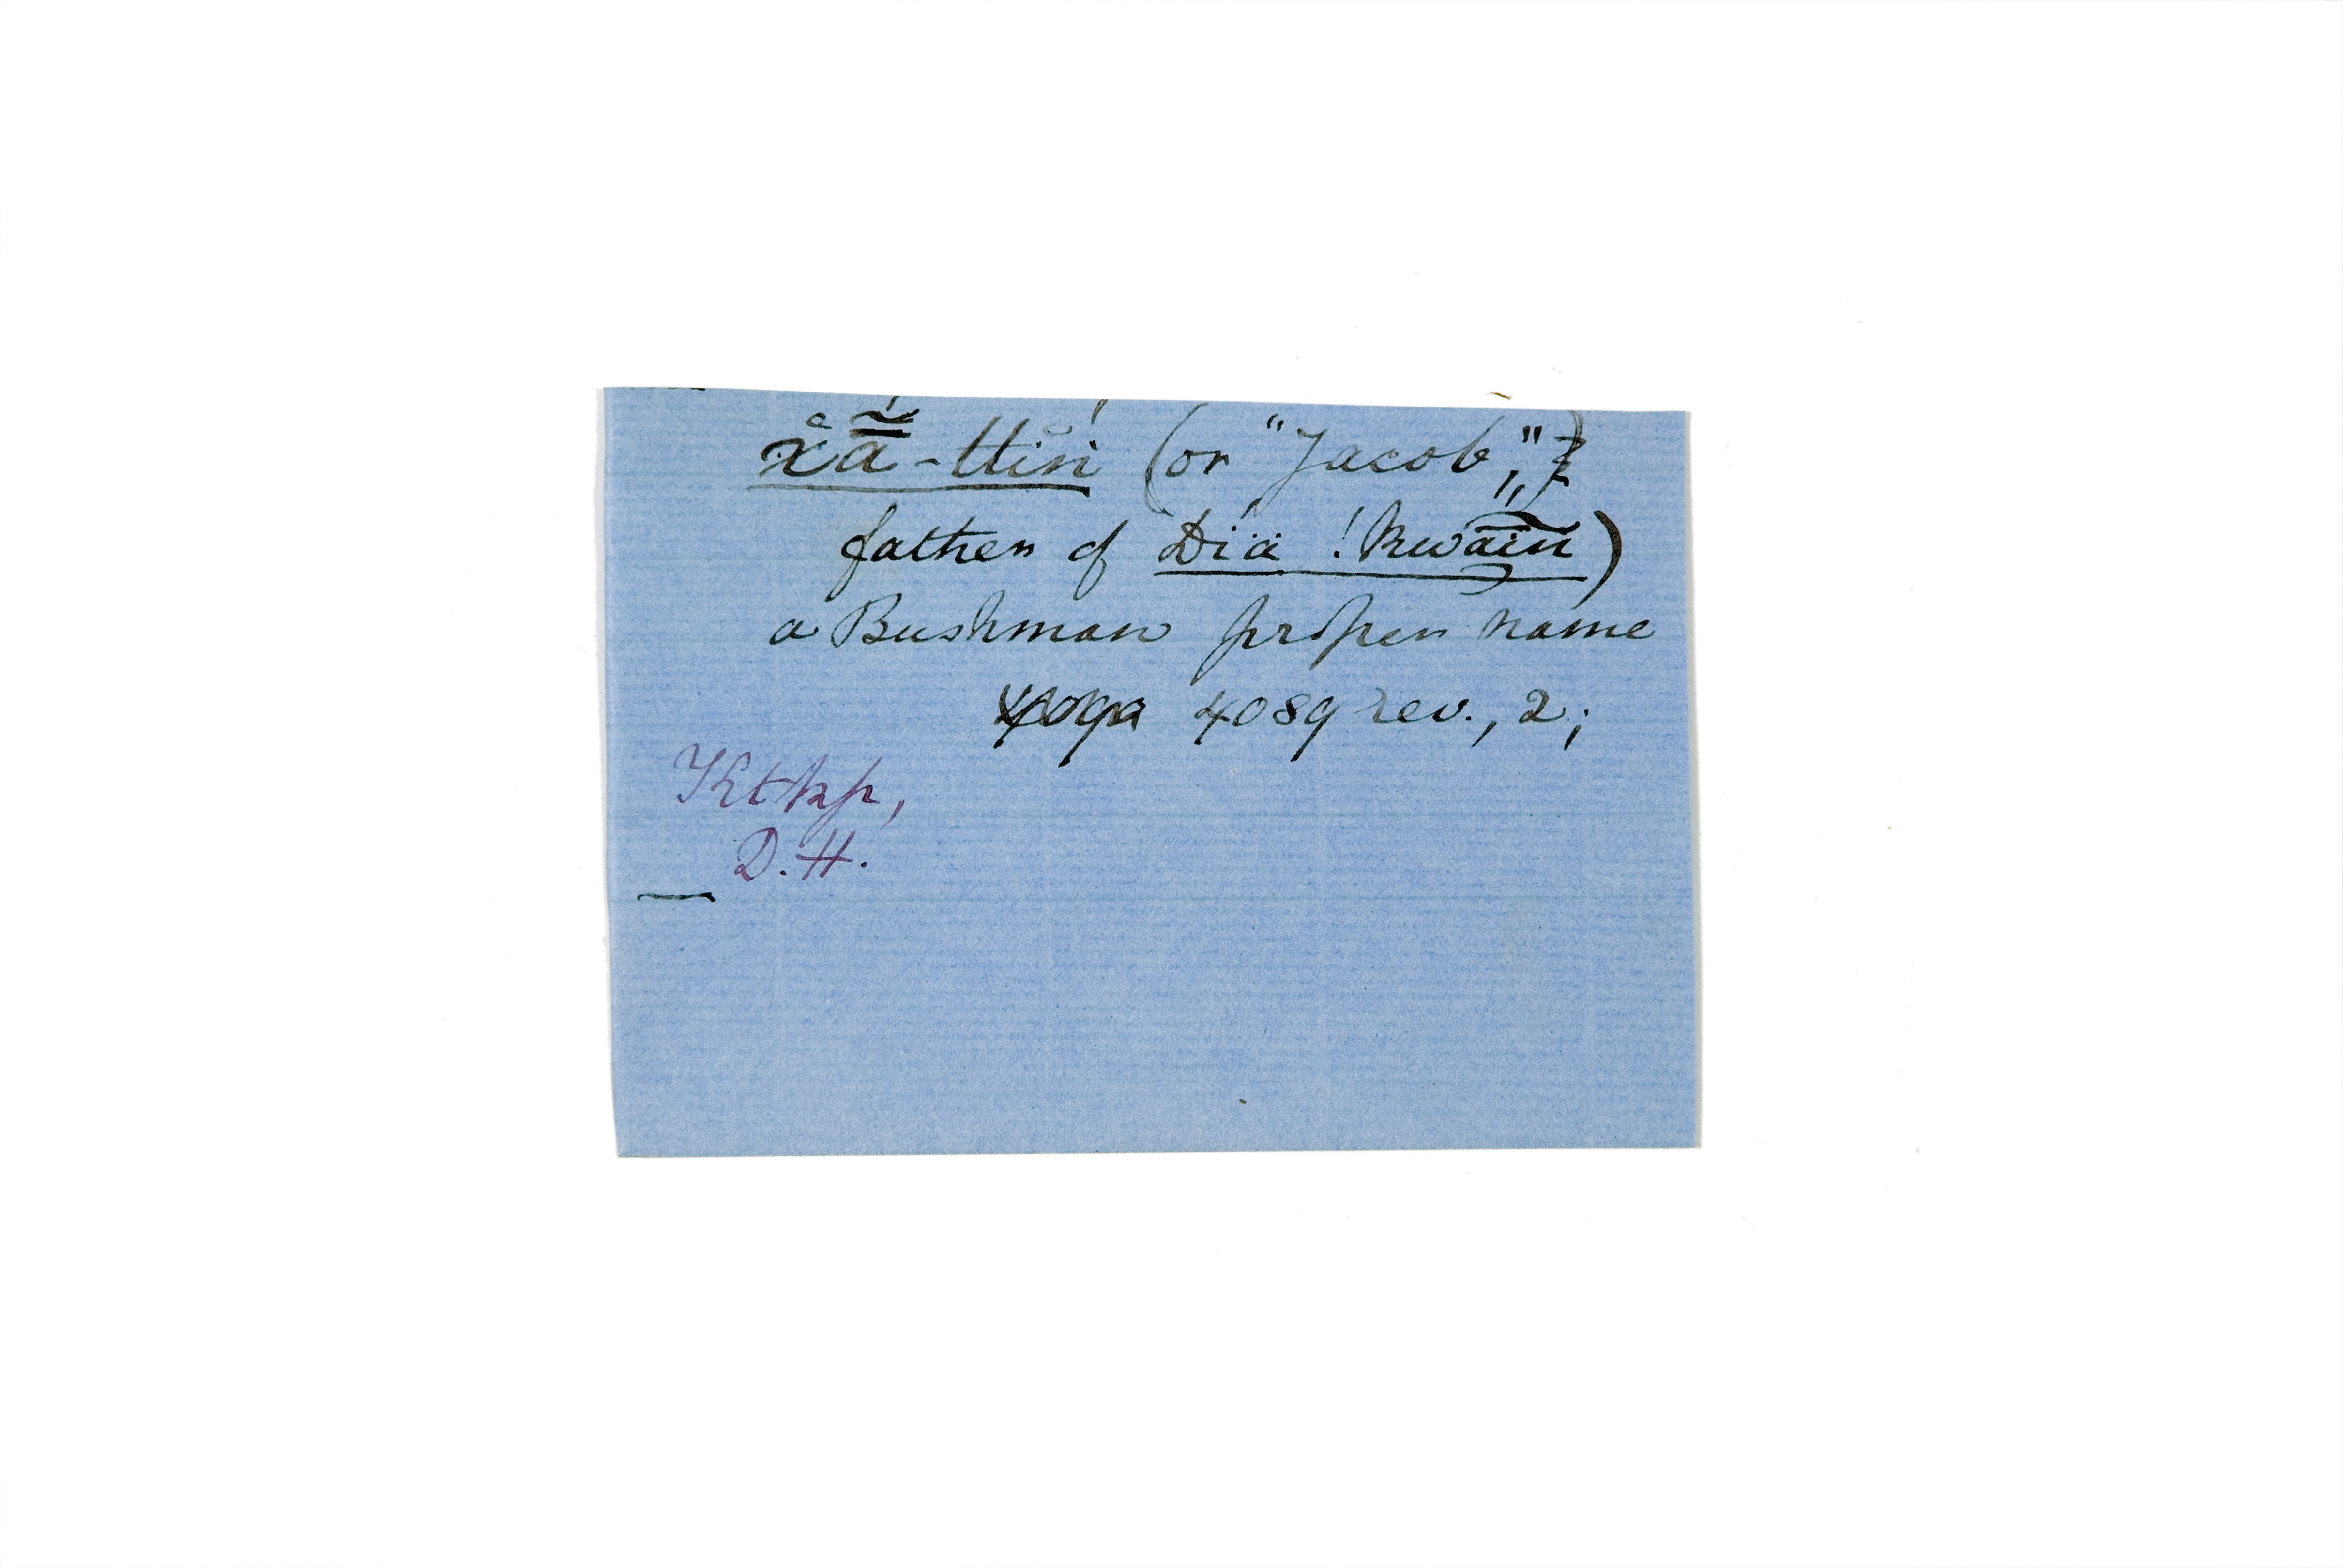 x̊ã̄-ttĭn (or "Jacob,"
father of Día̤ !kwã̄ĭn)
a Bushman proper name
4089 rev., 2;
Ktkp,
D.H.
—